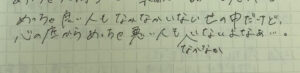 めっちゃ良い人もなかなかいない世の中だけど、
心の底からめっちゃ悪い人もいないよなぁ…。
なかなか